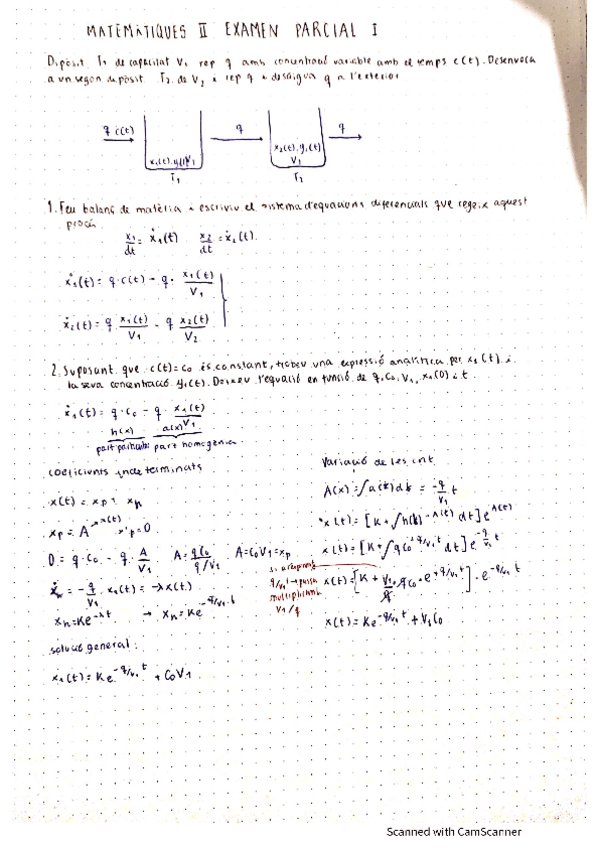 MATEMÀTIQUES II EXAMEN PARCIAL I
Dipòsit T1 de capacitat V1 rep q amb concentració variable amb el temps c(t). Desenvoca
a un segon dipòsit T2 de V2 i rep q i desaigua q a l'exterior
q c(t)
q
q
x1(t), y1(t) V1
T1
x2(t), y2(t)
V2
T2
1. Feu balanç de matèria i escriviu el sistema d'equacions diferencials que regeix aquest
procés
x1/dt = ẋ1(t) x2/dt = ẋ2(t).
ẋ1(t) = q·c(t) - q· x1(t)/V1
ẋ2(t) = q x1(t)/V1 - q x2(t)/V2
2. Suposant que c(t)=c0 és constant, trobeu una expressió analítica per x1(t) i
la seva concentració y1(t). Doneu l'equació en funció de q, c0, V1, x1(0) i t
ẋ1(t) = q·c0 - q· x1(t)/V1
h(x) a(x)
part particular part homogènia
coeficients indeterminats
x(t) = xp + xh
xp = A → x'p = 0
0 = q·c0 - q· A/V1 A = q c0/q/V1 A = c0V1 = xp
ẋh = -q/V1 · x1(t) = -λx(t)
xh = Ke^-λt → xh = Ke^-q/V1·t
solució general:
x1(t) = Ke^-q/V1 t + c0V1
Variació de les cnt
A(x) = ∫a(t)dt = -q/V1 t
x(t) = [K + ∫h(t)e^-A(t) dt] e^A(t)
x(t) = [K + ∫q c0 e^q/V1 t dt] e^-q/V1 t
x(t) = [K + V1/q · q c0 · e^q/V1 t] · e^-q/V1 t
q/V1 t → passa
multiplicant
V1/q
x(t) = Ke^-q/V1 t + V1c0
Scanned with CamScanner